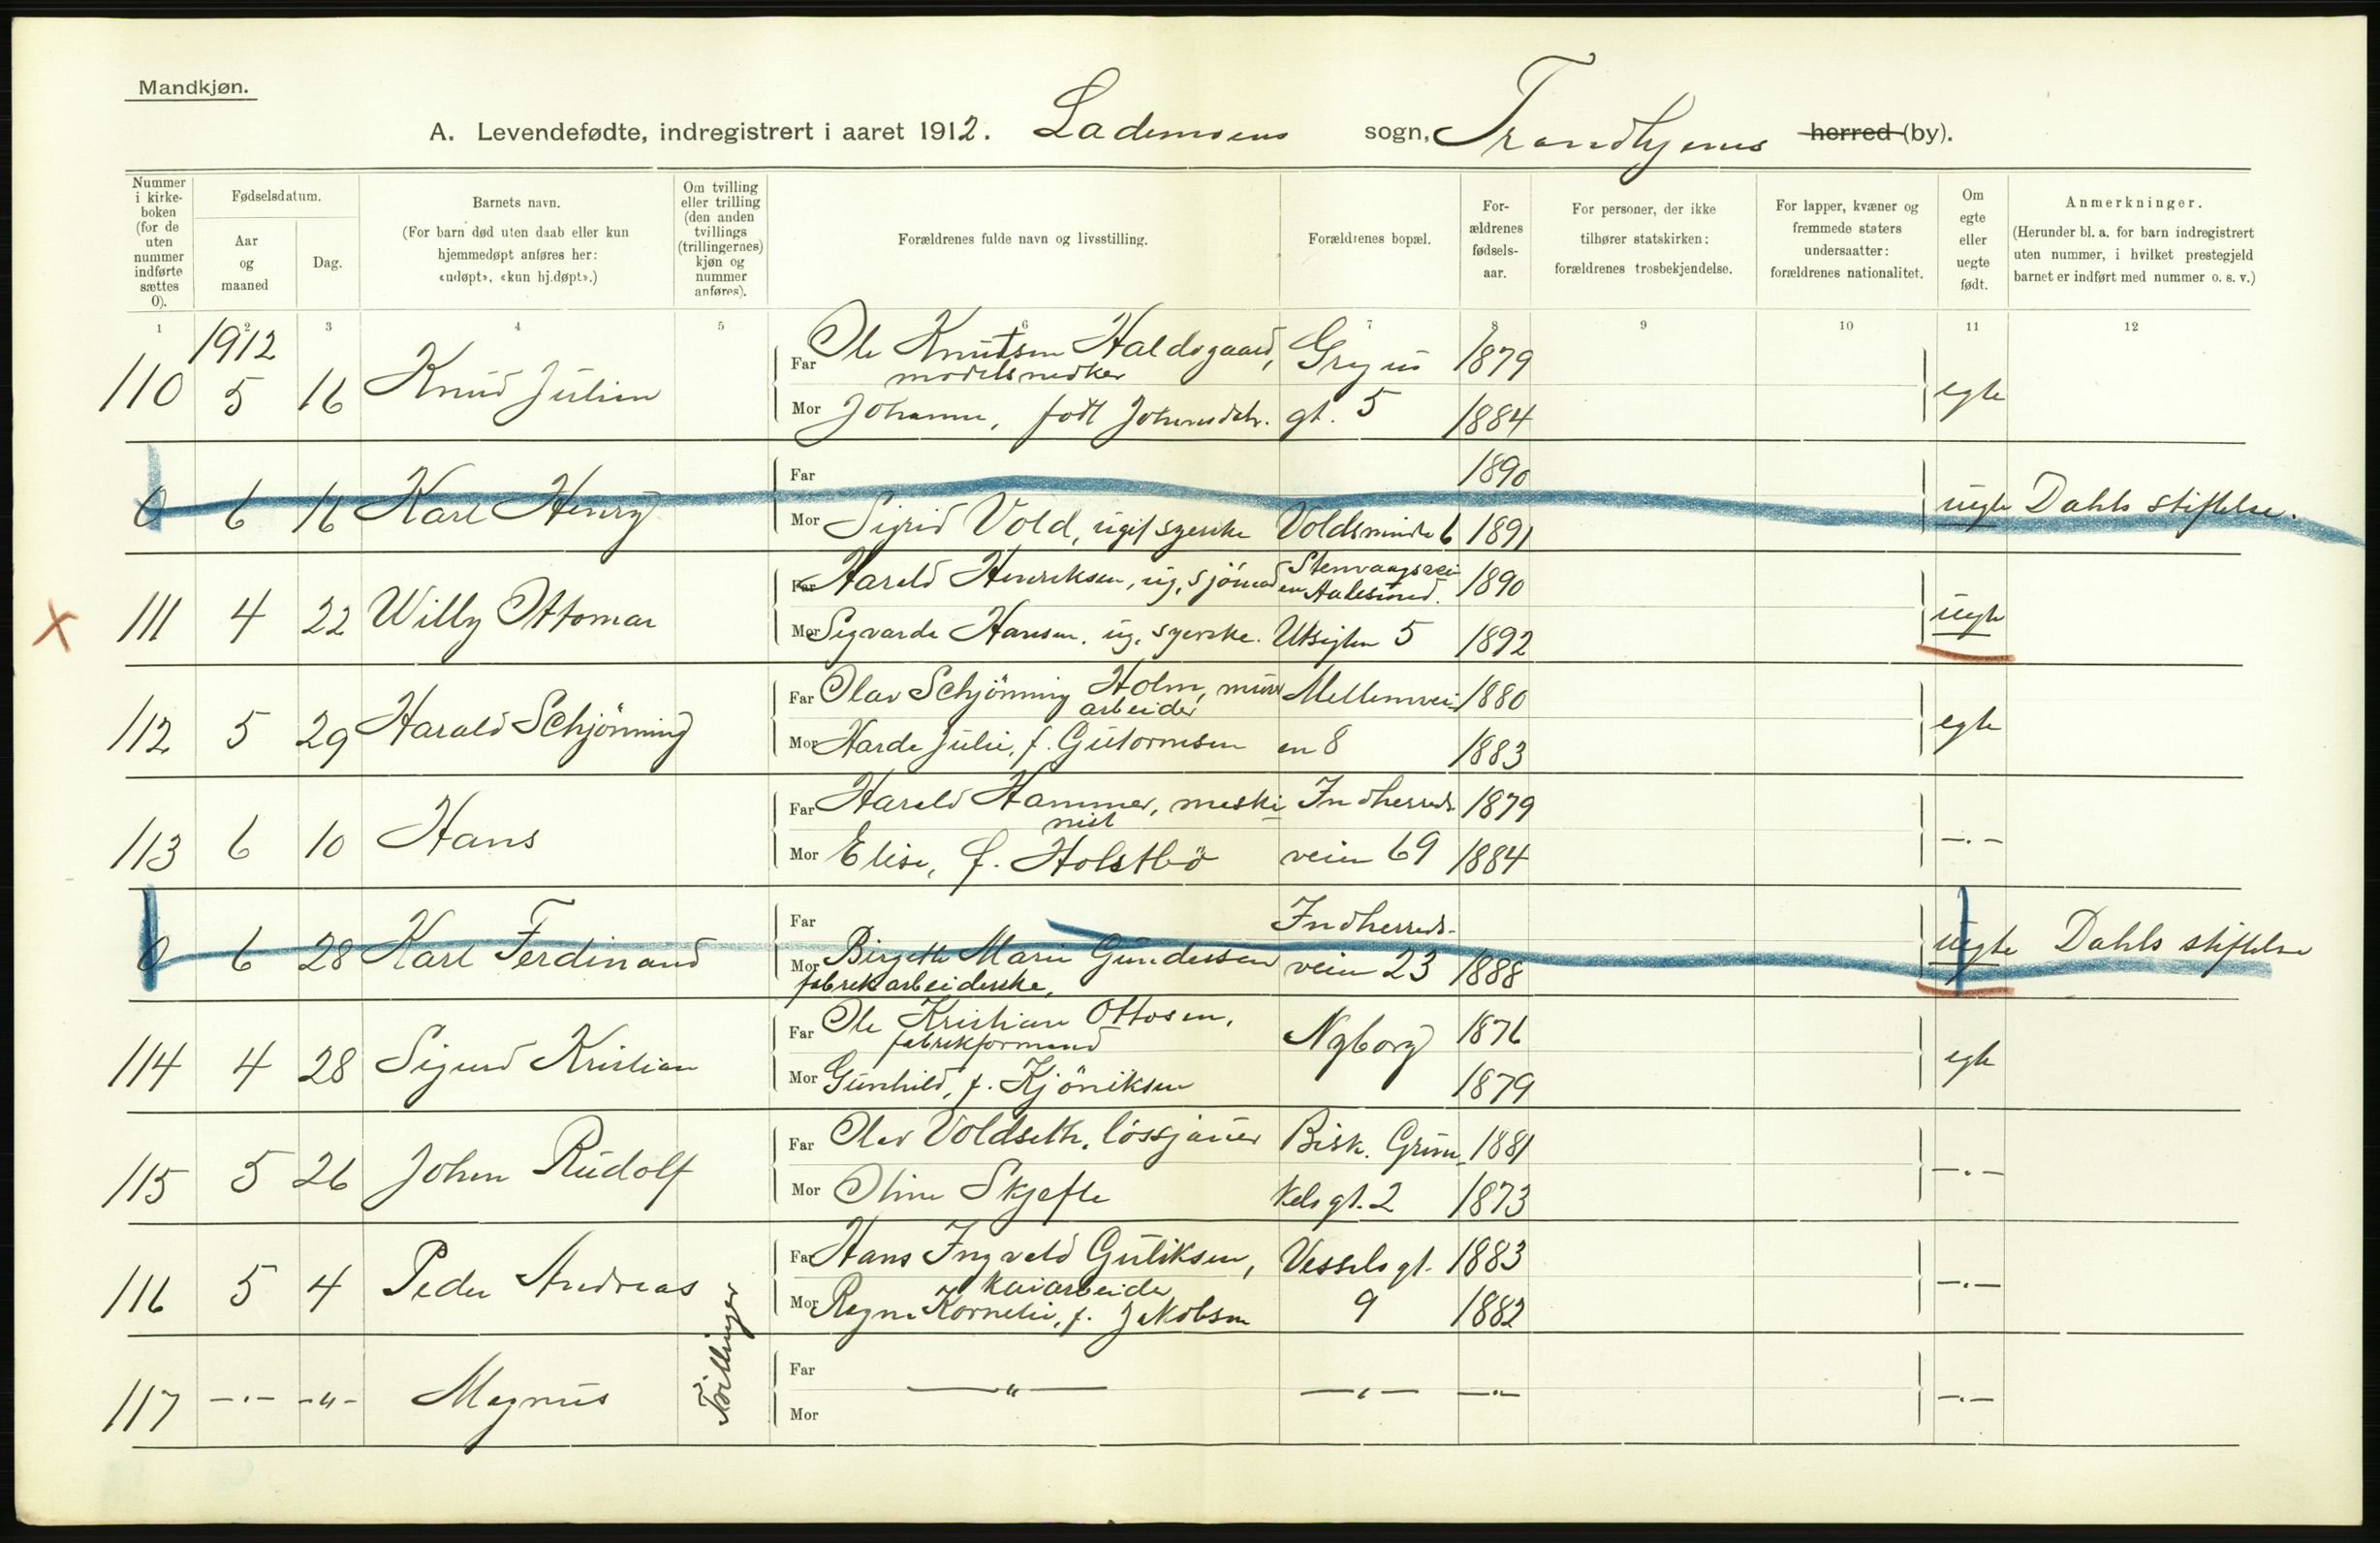 Mandkjøn.
A. Levendefødte, indregistrert i aaret 1912. Lademoens sogn, Trondhjems herred (by).
Nummer i kirke-boken (for de uten nummer indførte sættes 0).
Fødselsdatum.
Aar og maaned
Dag.
Barnets navn.
(For barn død uten daab eller kun hjemmedøpt anføres her: «udøpt», «kun hj.døpt».)
Om tvilling eller trilling (den anden tvillings (trillingernes) kjøn og nummer anføres).
Forældrenes fulde navn og livsstilling.
Forældrenes bopæl.
For-ældrenes fødsels-aar.
For personer, der ikke tilhører statskirken: forældrenes trosbekjendelse.
For lapper, kvæner og fremmede staters undersaatter: forældrenes nationalitet.
Om egte eller uegte født.
Anmerkninger.
(Herunder bl. a. for barn indregistrert uten nummer, i hvilket prestegjeld barnet er indført med nummer o. s. v.)
1 2 3 4 5 6 7 8 9 10 11 12
1912
110 5 16 Knud Julian
Far Ole Knutsen Haldsgaard, modelsnedker
Mor Johanne, født Johansdtr.
Gryus gt. 5
1879
1884
egte
0 6 16 Karl Henry
Far 1890
Mor Sigrid Vold, ugift syerske Voldsminde 6 1891
uegte Dahls stiftelse.
X 111 4 22 Willy Ottomar
Far Harald Henriksen, ug. sjömand Stenvaagsvei en Aalesund. 1890
Mor Sigvarda Hansen, ug. syerske. Utsigten 5 1892
uegte
112 5 29 Harald Schjönning
Far Olav Schjönning Holm, murarbeider Mellemvei- 1880
Mor Harda Julie, f. Gutormsen en 8 1883
egte
113 6 10 Hans
Far Harald Hammer, maskinist Indherreds- 1879
Mor Elise, f. Holstbö veien 69 1884
— . —
0 6 28 Karl Ferdinand
Far Indherreds-
Mor Birgethe Marie Gundersen veien 23 1888
fabrekarbeiderske,
uegte Dahls stiftelse
114 4 28 Sigurd Kristian
Far Ole Kristian Ottosen, fabrikformand
Nyborg 1876
Mor Gunhild, f. Kjöniksen 1879
egte
115 5 26 Johan Rudolf
Far Olav Voldseth, lössjauer Bisk. Grim- 1881
Mor Oline Skjefte kels gt. 2 1873
— . —
116 5 4 Peder Andreas
Far Hans Ingvald Guliksen, kaiarbeider Vessels gt. 1883
Mor Ragna Kornelie, f. Jakobsen 9 1882
— . —
Tvillinger
117 — . — — " — Magnus
Far — " — — " — — " —
Mor
— . —